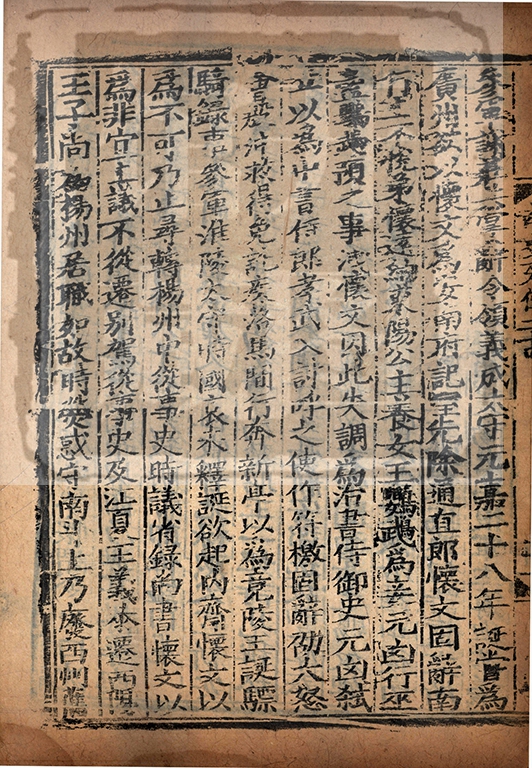 參軍謝莊共掌辭令領義成太守元嘉二十八年誕當爲
廣州欲以懷文爲安南府記室先除通直郎懷文固辭南
行上不悅弟懷遠納東陽公主養女王鸚鵡爲妾元凶行巫
蠱鸚鵡預之事泄懷文因此失調爲治書侍御史元凶弒
立以爲中書侍郎孝武入討呼之使作符檄固辭劭大怒
會殷沖救得免託疾落馬間行奔新亭以爲竟陵王誕驃
騎錄事參軍淮陵太守時國哀未釋誕欲起內齋懷文以
爲不可乃止尋轉楊州中從事史時議省録尚書懷文以
爲非宜上議不從遷別駕從事史及江夏王義恭遷西陽
王子尚爲揚州居職如故時熒惑守南斗上乃廢西州舊